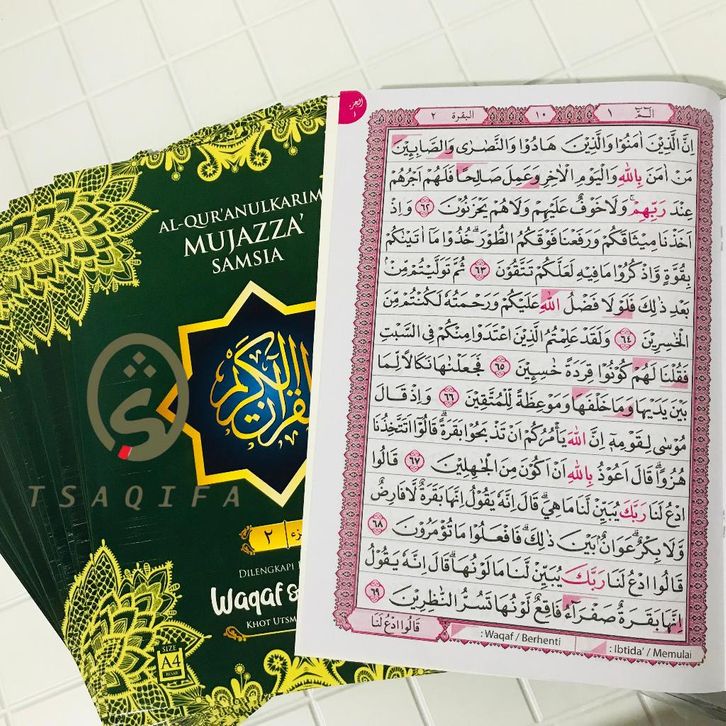 AL-QUR'ANULKARIM
MUJAZZA'
SAMSIA
القرآن الكريم
TSAQIFA
٢
DILENGKAPI
Waqaf &
KHOT UTSM
SIZE
A4
الجزء ١
الۤمّۤ ١
١٠
البقرة ٢
اِنَّ الَّذِيْنَ اٰمَنُوْا وَالَّذِيْنَ هَادُوْا وَالنَّصٰرٰى وَالصَّابِـِٕيْنَ
مَنْ اٰمَنَ بِاللّٰهِ وَالْيَوْمِ الْاٰخِرِ وَعَمِلَ صَالِحًا فَلَهُمْ اَجْرُهُمْ
عِنْدَ رَبِّهِمْ وَلَا خَوْفٌ عَلَيْهِمْ وَلَا هُمْ يَحْزَنُوْنَ ٦٢ وَاِذْ
اَخَذْنَا مِيْثَاقَكُمْ وَرَفَعْنَا فَوْقَكُمُ الطُّوْرَ خُذُوْا مَآ اٰتَيْنٰكُمْ
بِقُوَّةٍ وَّاذْكُرُوْا مَا فِيْهِ لَعَلَّكُمْ تَتَّقُوْنَ ٦٣ ثُمَّ تَوَلَّيْتُمْ مِّنْۢ
بَعْدِ ذٰلِكَ فَلَوْلَا فَضْلُ اللّٰهِ عَلَيْكُمْ وَرَحْمَتُهٗ لَكُنْتُمْ مِّنَ
الْخٰسِرِيْنَ ٦٤ وَلَقَدْ عَلِمْتُمُ الَّذِيْنَ اعْتَدَوْا مِنْكُمْ فِى السَّبْتِ
فَقُلْنَا لَهُمْ كُوْنُوْا قِرَدَةً خٰسِـِٕيْنَ ٦٥ فَجَعَلْنٰهَا نَكَالًا لِّمَا
بَيْنَ يَدَيْهَا وَمَا خَلْفَهَا وَمَوْعِظَةً لِّلْمُتَّقِيْنَ ٦٦ وَاِذْ قَالَ
مُوْسٰى لِقَوْمِهٖٓ اِنَّ اللّٰهَ يَأْمُرُكُمْ اَنْ تَذْبَحُوْا بَقَرَةً قَالُوْٓا اَتَتَّخِذُنَا
هُزُوًا قَالَ اَعُوْذُ بِاللّٰهِ اَنْ اَكُوْنَ مِنَ الْجٰهِلِيْنَ ٦٧ قَالُوا
ادْعُ لَنَا رَبَّكَ يُبَيِّنْ لَّنَا مَا هِيَ قَالَ اِنَّهٗ يَقُوْلُ اِنَّهَا بَقَرَةٌ لَّا فَارِضٌ
وَّلَا بِكْرٌ عَوَانٌۢ بَيْنَ ذٰلِكَ فَافْعَلُوْا مَا تُؤْمَرُوْنَ ٦٨
قَالُوا ادْعُ لَنَا رَبَّكَ يُبَيِّنْ لَّنَا مَا لَوْنُهَا قَالَ اِنَّهٗ يَقُوْلُ
اِنَّهَا بَقَرَةٌ صَفْرَاۤءُ فَاقِعٌ لَّوْنُهَا تَسُرُّ النّٰظِرِيْنَ ٦٩
قَالُوا ادْعُ لَنَا
: Waqaf / Berhenti
: Ibtida' / Memulai